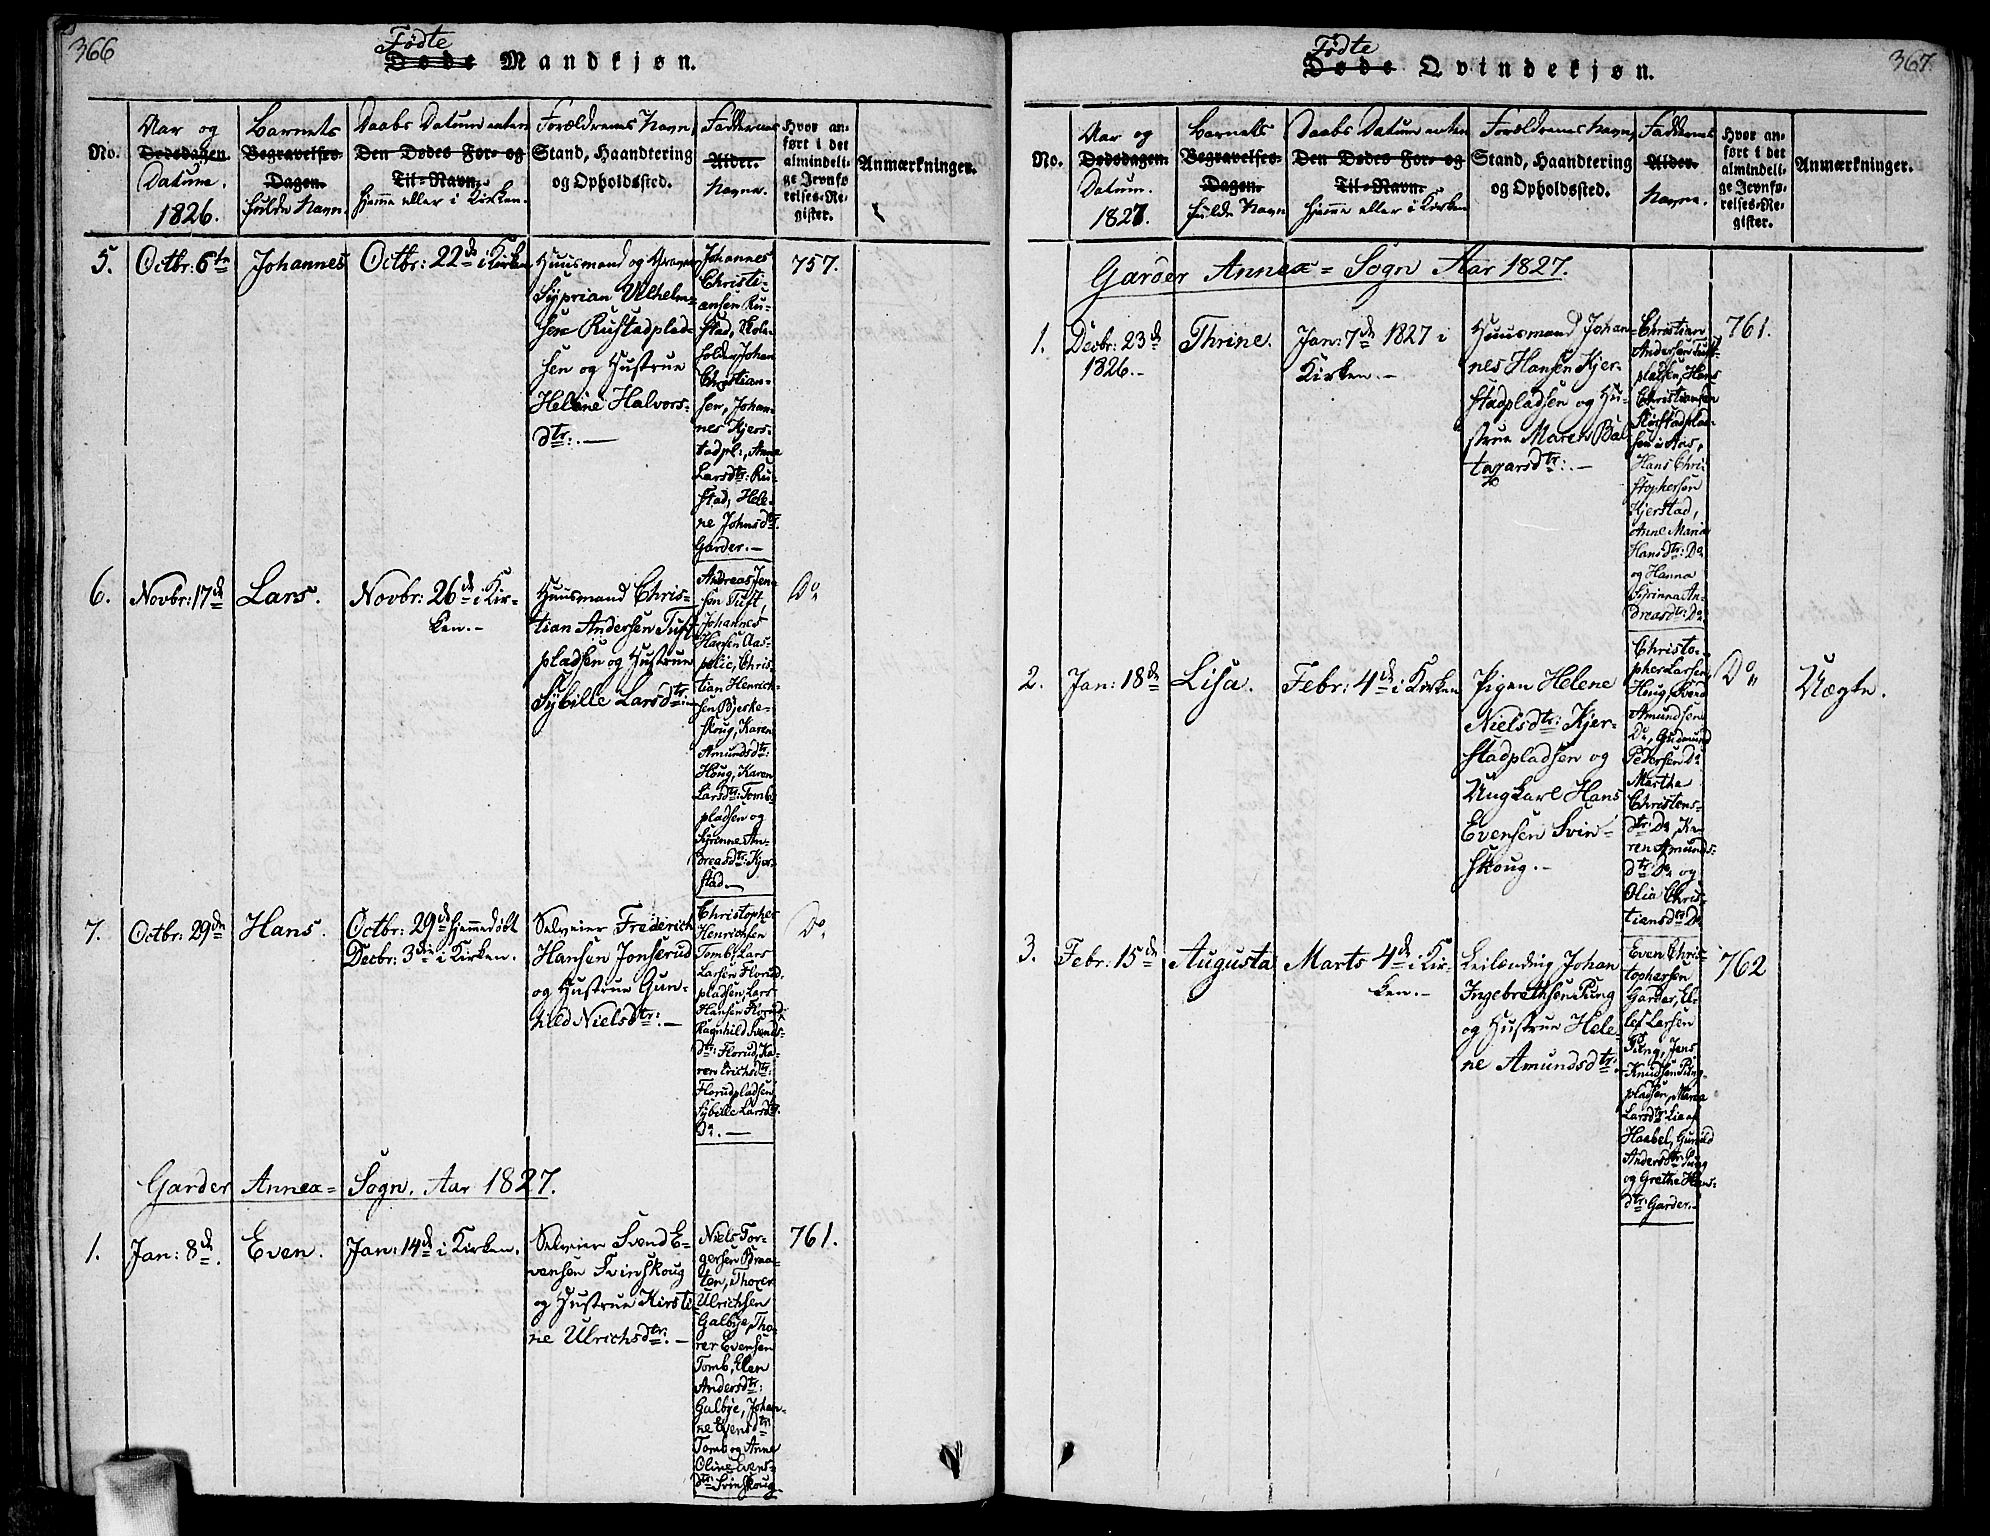 366
Fødte
Døde Mandkjøn.
No.
Aar og
Dødsdagen.
Datum.
1826.
Barnets
Begravelses-
Dagen.
fulde Navn.
Daabs Datum enten
Den Dødes For- og
Til-Navn.
hjemme eller i Kirken.
Forældrenes Navn,
Stand, Haandtering
og Opholdssted.
Faddernes
Alder.
Navne.
Hvor an-
ført i det
almindeli-
ge Jevnfø-
relses-Re-
gister.
Anmærkninger.
5.
Octbr: 6te
Johannes
Octbr: 22de i Kirken
Huusmand og
Syprian Vilhelm-
sen Rustadplad-
sen og Hustrue
Helene Halvors-
dtr:.—
Johannes
Christi-
ansen Ru-
stad, Skole-
holder Johan
Christian-
sen, Johan-
nes Kjers-
tadpl:, Anne
Larsdtr: Ru-
stad, Hele-
ne Johnsdtr
Garder.—
757.
6.
Novbr: 17de
Lars.
Novbr: 26de i Kir-
ken.—
Huusmand Chris-
tian Andersen Tuft-
pladsen og Hustrue
Sybille Larsdtr:—
Andreas Jen-
sen Tuft,
Johannes
Hansen Aas-
pelie, Chris-
tian Henrich-
sen Bjerke-
skoug, Karen
Amundsdtr:
Houg, Karen
Larsdtr: Tomb-
pladsen og
Syrinne An-
dreasdtr: Kjer-
stad.—
Do
7.
Octbr: 29de
Hans.
Octbr: 29de hjemmedøbt
Decbr: 3die i Kirken.
Selveier Frederich
Hansen Jonserud
og Hustrue Gun-
hild Nielsdtr:—
Christopher
Henrichsen
Tomb, Lars
Larsen Florud-
pladsen, Lars
Hansen Florud,
Ragnhild Svends-
dtr: Florud, Ka-
ren Erichsdtr:
Florudpladsen,
Sybille Larsdtr
Do.—
Do
Garder Annex-Sogn. Aar 1827.
1.
Jan: 8de.
Even.
Jan: 14de i Kirken.
Selveier Svend E-
vensen Svinskoug
og Hustrue Kirsti-
ne Ulrichsdtr:—
Niels Tor-
gersen Braa-
ten, Thorer
Ulrichsen
Galbye, Tho-
rer Evensen
Tomb, Elen
Andersdtr:
Galbye, Johan-
ne Evensdtr
Tomb og Anne
Oline Evens-
dtr Svinskoug
761.
367.
Fødte
Døde Qvindekjøn.
No.
Aar og
Dødsdagen.
Datum.
1827.
Barnets
Begravelses-
Dagen.
fulde Navn
Daabs Datum enten
Den Dødes For- og
Til-Navn.
hjemme eller i Kirken
Forældrenes Navn,
Stand, Haandtering
og Opholdssted.
Faddernes
Alder.
Navne.
Hvor an-
ført i det
almindeli-
ge Jevnfø-
relses-Re-
gister.
Anmærkninger.
Garder Annex-Sogn Aar 1827.
1.
Decbr: 23de
1826.—
Thrine.
Jan: 7de 1827 i
Kirken.—
Huusmand Johan-
nes Hansen Kjer-
stadpladsen og Hu-
strue Maren Bal-
tazarsdtr:.—
Christian
Andersen Tuft-
pladsen, Hans
Christiansen
Kjerstadplad-
sen i Aas,
Hans Chri-
stophersen
Kjerstad,
Anne Maria
Hansdtr: Do
og Hanna
Syrinna An-
dreasdtr: Do.
761.
2.
Jan: 18de
Lisa.
Febr: 4de i Kirken
Pigen Helene
Nielsdtr: Kjer-
stadpladsen og
Ungkarl Hans
Evensen Svin-
skoug.—
Christo-
pher Larsen
Houg, Svend
Amundsen
Do, Gudmund
Pedersen Do
Marthe
Christens-
dtr: Do, Ka-
ren Amunds-
dtr: Do og
Olia Chris-
tiansdtr Do
Do
Uægte.
3.
Febr: 15de
Augusta
Marts 4de i Kir-
ken.—
Leilænding Johan
Ingebrethsen Pung
og Hustrue Hele-
ne Amundsdtr:
Even Chris-
tophersen
Garder, El-
lef Larsen
Pung, Jens
Knudsen Pung-
pladsen, Maria
Larsdtr Lie af
Haabel, Gunild
Andersdtr Pung
og Grethe Hans-
dtr: Garder.—
762